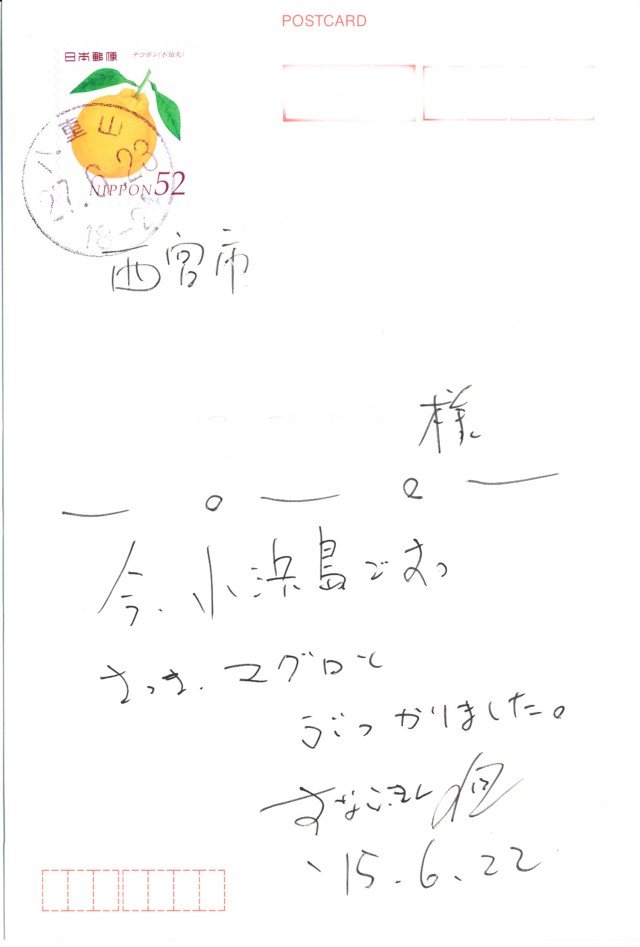 POSTCARD
日本郵便
デコポン(不知火)
NIPPON 52
八重山
27.6.23
18-24
西宮市
様
今、小浜島です
さっき、マグロと
ぶつかりました。
'15.6.22